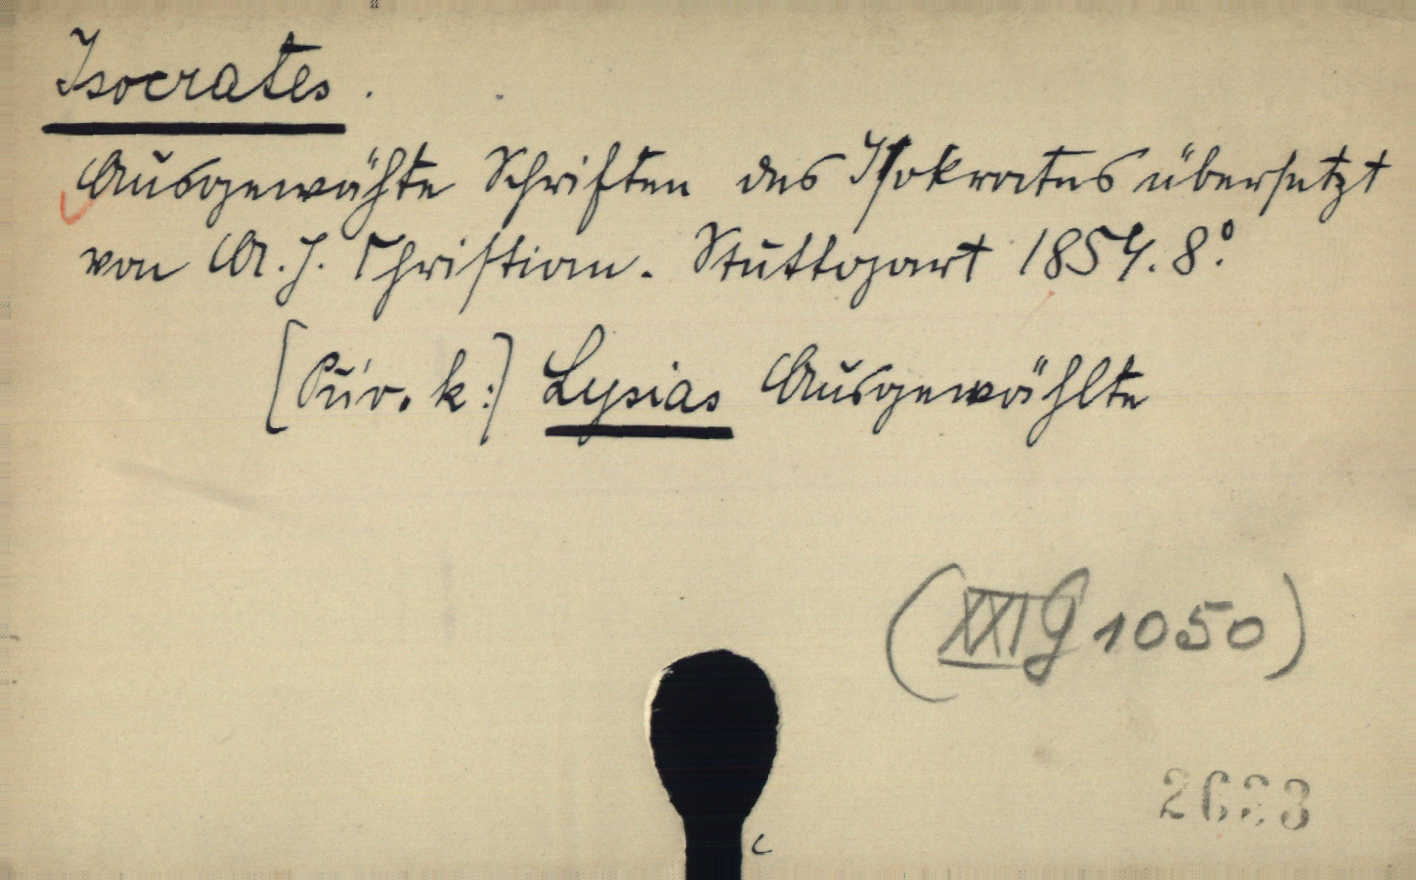 Isocrates.
Ausgewähte Schriften des Isokrates übersetzt
von A. J. Christian. Stuttgart 1854. 8°.
[Rúv. k:] Lysias Ausgewählte
(XXI G 1050)
2633